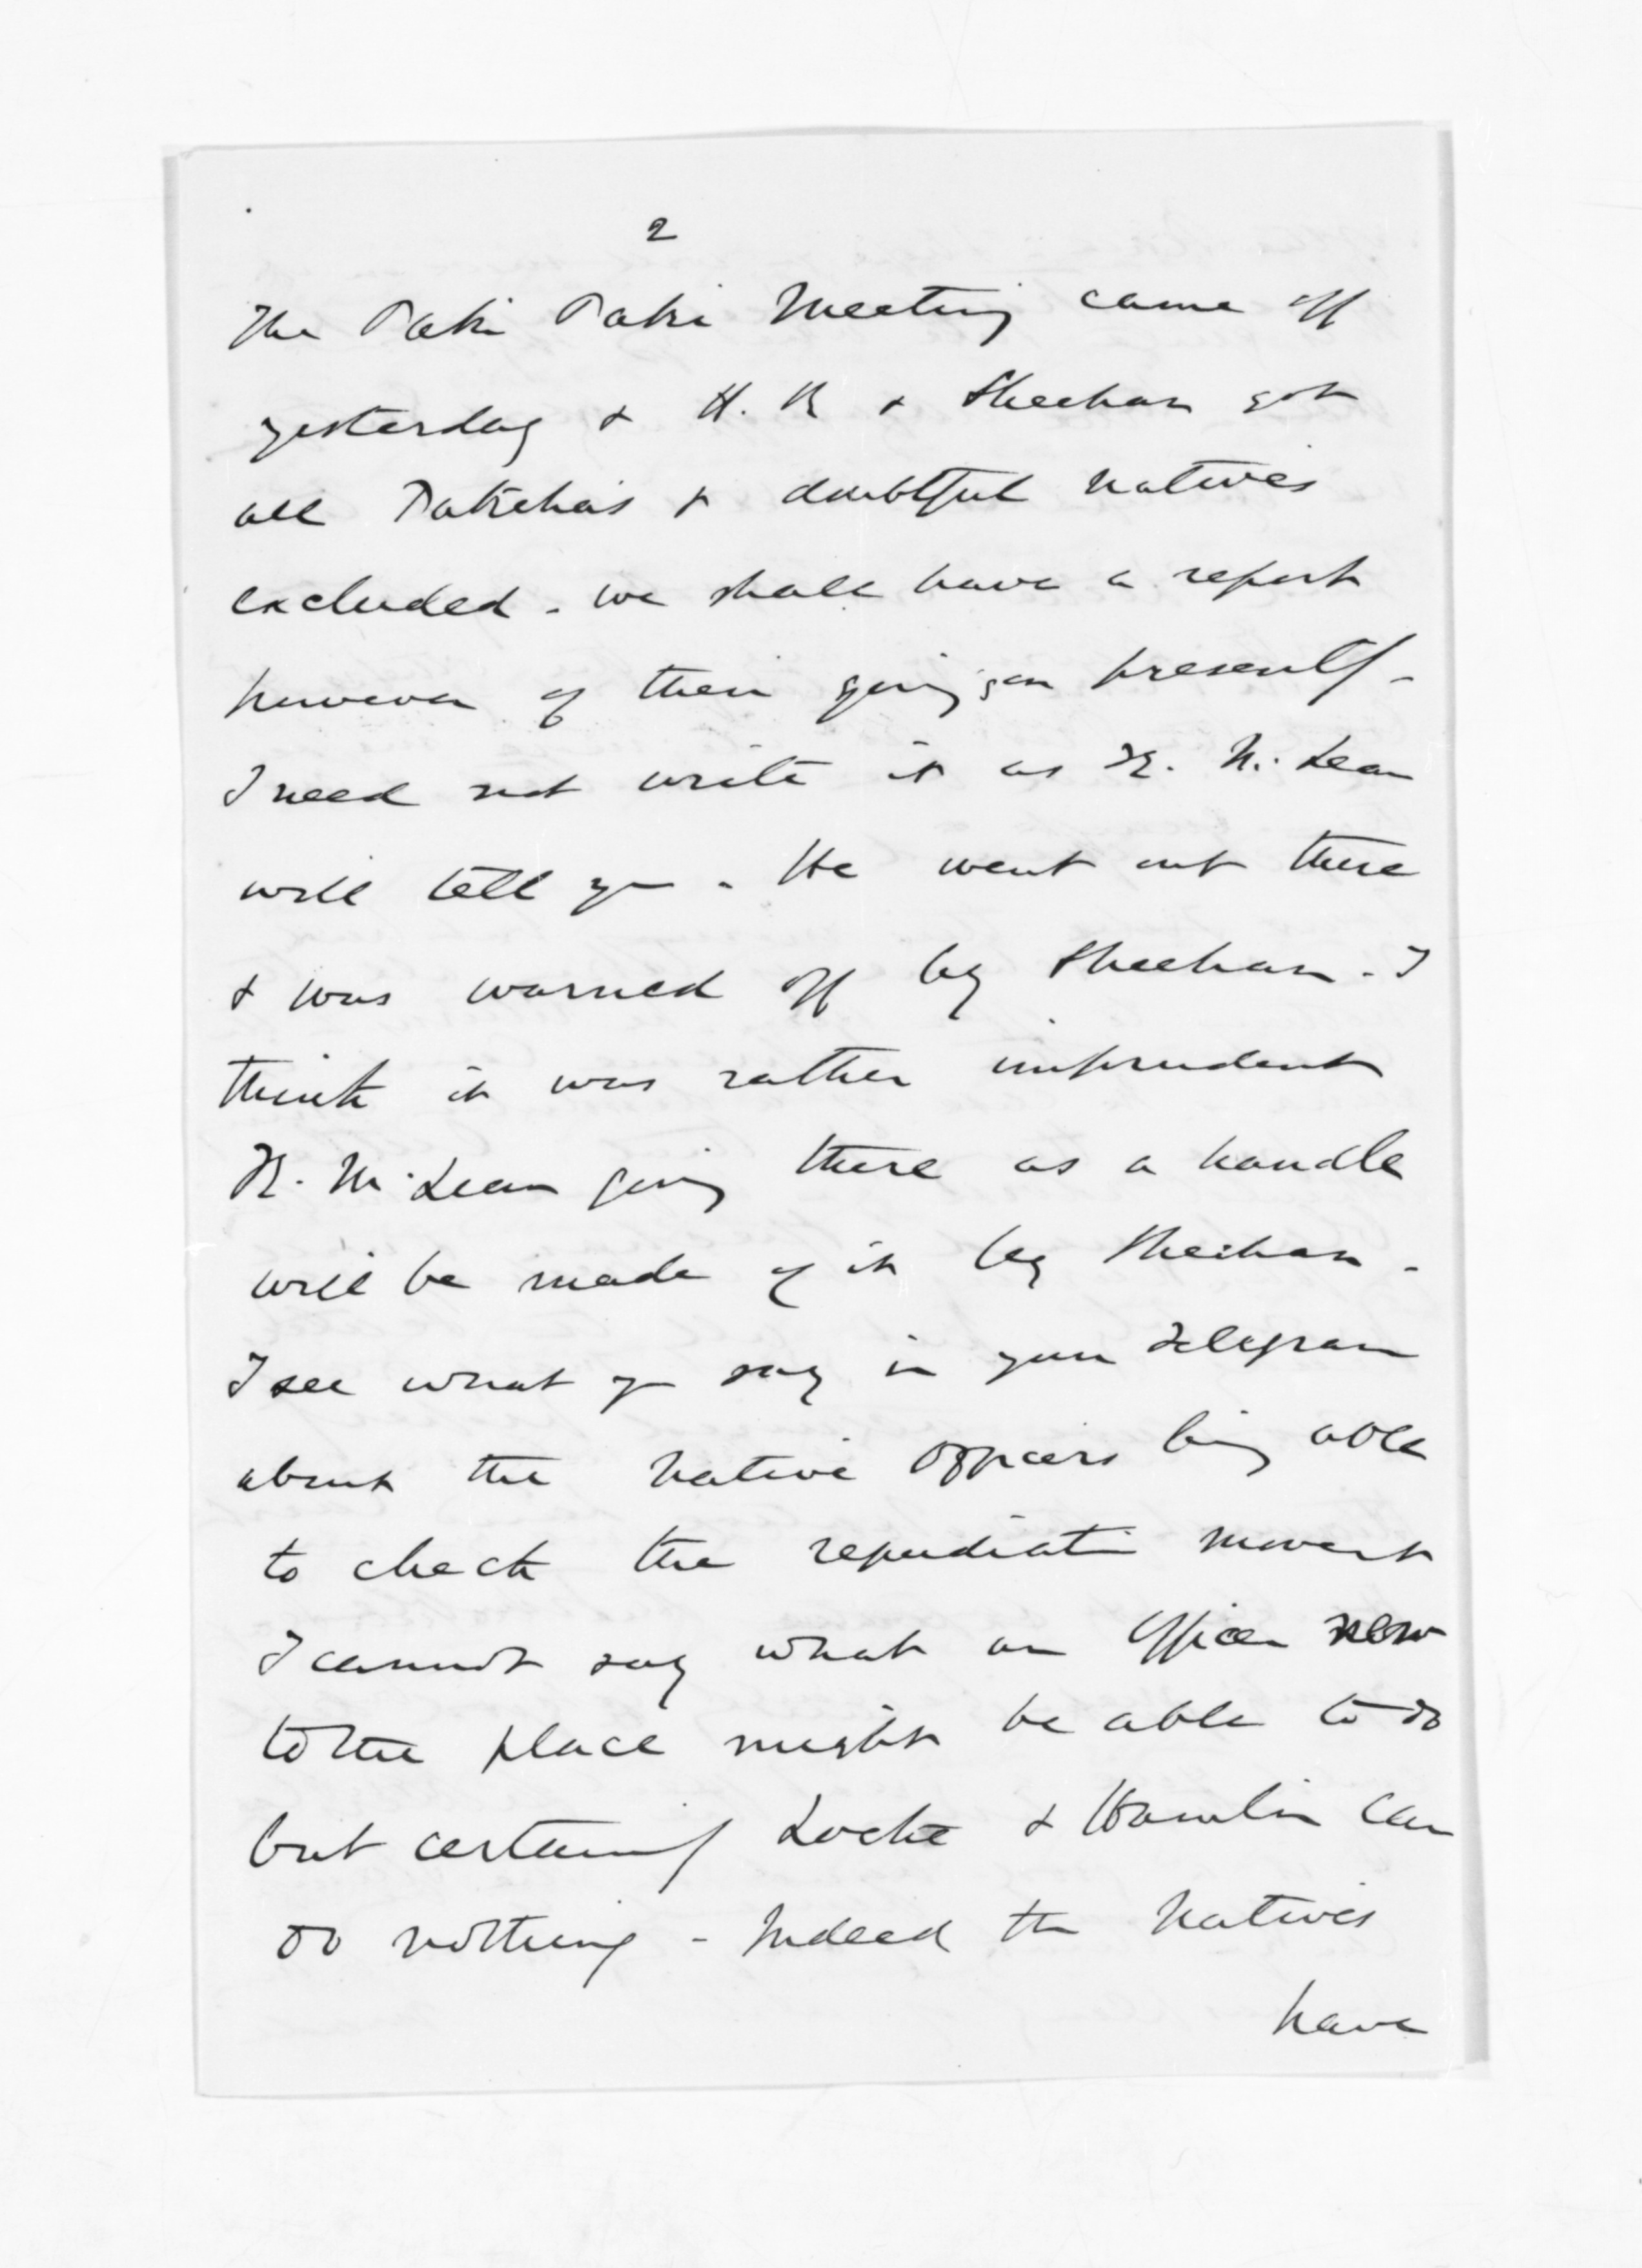 2
The Paki Paki Meeting came off
yesterday & H. R & Sheehan got
all Pakehas & doubtful natives
excluded - we shall have a report
however of their going on presently -
I need not write it as R. McLean
will tell you - He went out there
& was warned off by Sheehan - I
think it was rather imprudent
R. McLean going there as a handle
will be made of it by Sheehan -
I see what you say in your telegram
about the Native Officers being able
to check the repudiation movemt
I cannot say what an Officer new
to the place might be able to do
but certainly Locke & Hamlin can
do nothing - Indeed the Natives
have